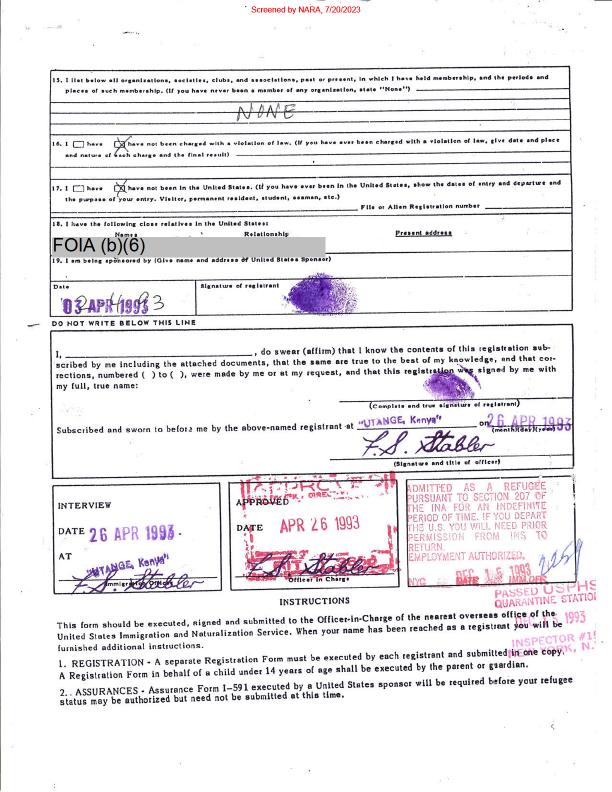 Screened by NARA, 7/20/2023
15. I list below all organizations, societies, clubs, and associations, past or present, in which I have held membership, and the periods and
places of such membership. (If you have never been a member of any organization, state "None")
NONE
16. I have have not been charged with a violation of law. (If you have ever been charged with a violation of law, give date and place
and nature of each charge and the final result)
17. I have have not been in the United States. (If you have ever been in the United States, show the dates of entry and departure and
the purpose of your entry. Visitor, permanent resident, student, seaman, etc.)
File or Alien Registration number
18. I have the following close relatives in the United States:
Names Relationship Present address
FOIA (b)(6)
19. I am being sponsored by (Give name and address of United States Sponsor)
Date Signature of registrant
03 APR 1993
DO NOT WRITE BELOW THIS LINE
I, , do swear (affirm) that I know the contents of this registration sub-
scribed by me including the attached documents, that the same are true to the best of my knowledge, and that cor-
rections, numbered ( ) to ( ), were made by me or at my request, and that this registration was signed by me with
my full, true name:
(Complete and true signature of registrant)
Subscribed and sworn to before me by the above-named registrant at "UTANGE, Kenya" on 26 APR 1993
(month)(day)(year)
F.S. Stabler
(Signature and title of officer)
INTERVIEW
DATE 26 APR 1993
AT
"UTANGE, Kenya"
F.S. Stabler
APPROVED
DATE APR 26 1993
F.S. Stabler
Officer in Charge
ADMITTED AS A REFUGEE
PURSUANT TO SECTION 207 OF
THE INA FOR AN INDEFINITE
PERIOD OF TIME. IF YOU DEPART
THE U.S. YOU WILL NEED PRIOR
PERMISSION FROM INS TO
RETURN.
EMPLOYMENT AUTHORIZED.
NYC DEC 1993
PASSED USPHS
QUARANTINE STATION
1993
INSPECTOR
INSTRUCTIONS
This form should be executed, signed and submitted to the Officer-in-Charge of the nearest overseas office of the
United States Immigration and Naturalization Service. When your name has been reached as a registrant you will be
furnished additional instructions.
1. REGISTRATION - A separate Registration Form must be executed by each registrant and submitted in one copy.
A Registration Form in behalf of a child under 14 years of age shall be executed by the parent or guardian.
2. ASSURANCES - Assurance Form I-591 executed by a United States sponsor will be required before your refugee
status may be authorized but need not be submitted at this time.